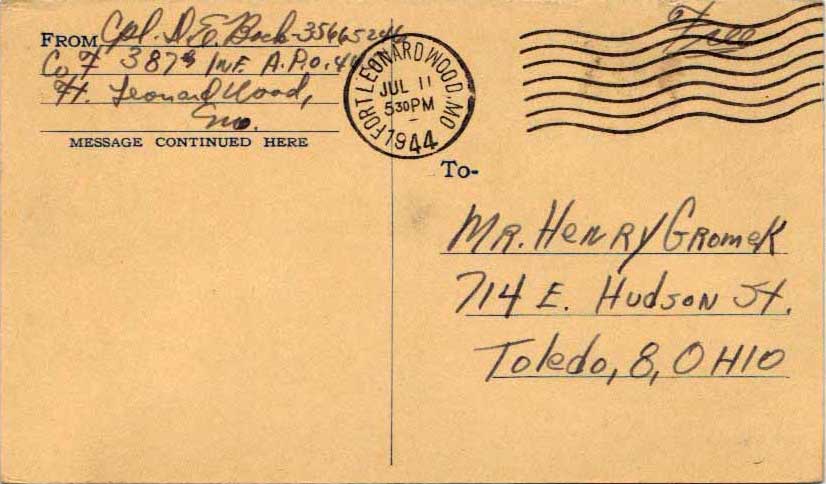 Free
FROM Cpl. D. E. Bock-35665246
Co F 387th INF. A.P.O. 44
Ft. Leonard Wood,
Mo.
MESSAGE CONTINUED HERE
FORT LEONARD WOOD, MO.
JUL 11
530 PM
1944
To-
MR. HENRY GROMEK
714 E. HUDSON ST.
Toledo, 8, OHIO